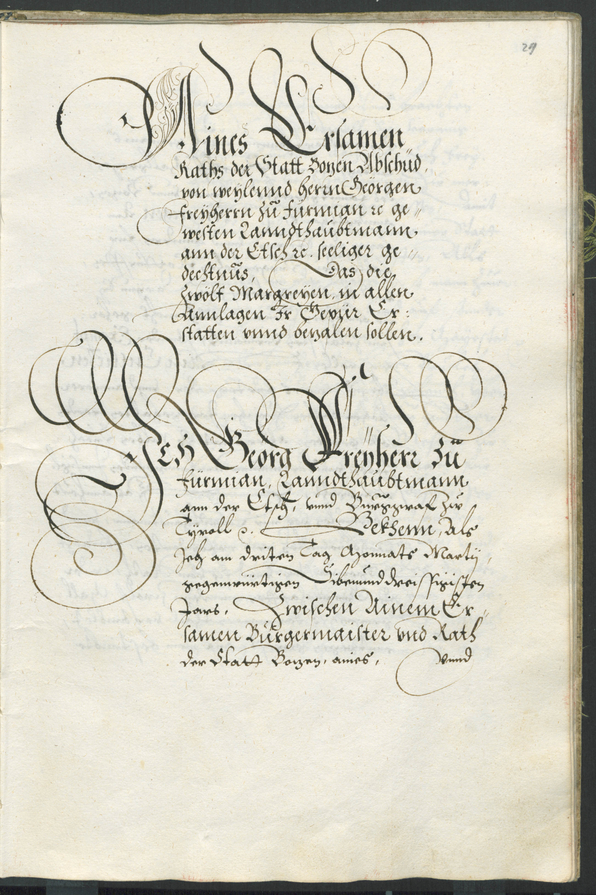 29
Aines Ersamen
Raths der Statt Bozen Abschid,
von weylennd herrn Georgen
freyherrn zu fürmian ꝛc ge„
westen Lanndthaubtmann
ann der Etsch ꝛc. seeliger ge
dechtnus, Das die
zwölf Margreyen, in allen
Annlagen Ir Gepür Er:
statten vnnd bezalen sollen.
Ich Georg Freyherr zu
fürmian, Lanndthaubtmann
ann der Etsch, vnnd Burggraf zu
Tyroll ꝛc. Bekhenn, Als
Ich am driten Tag Monnats Marty,
gegenwürtigen Sibenunddreissigisten
Jars, Zwischen Ainem Er„
samen Burgermaister vnd Rath
der Statt Bozen, aines, Vnnd